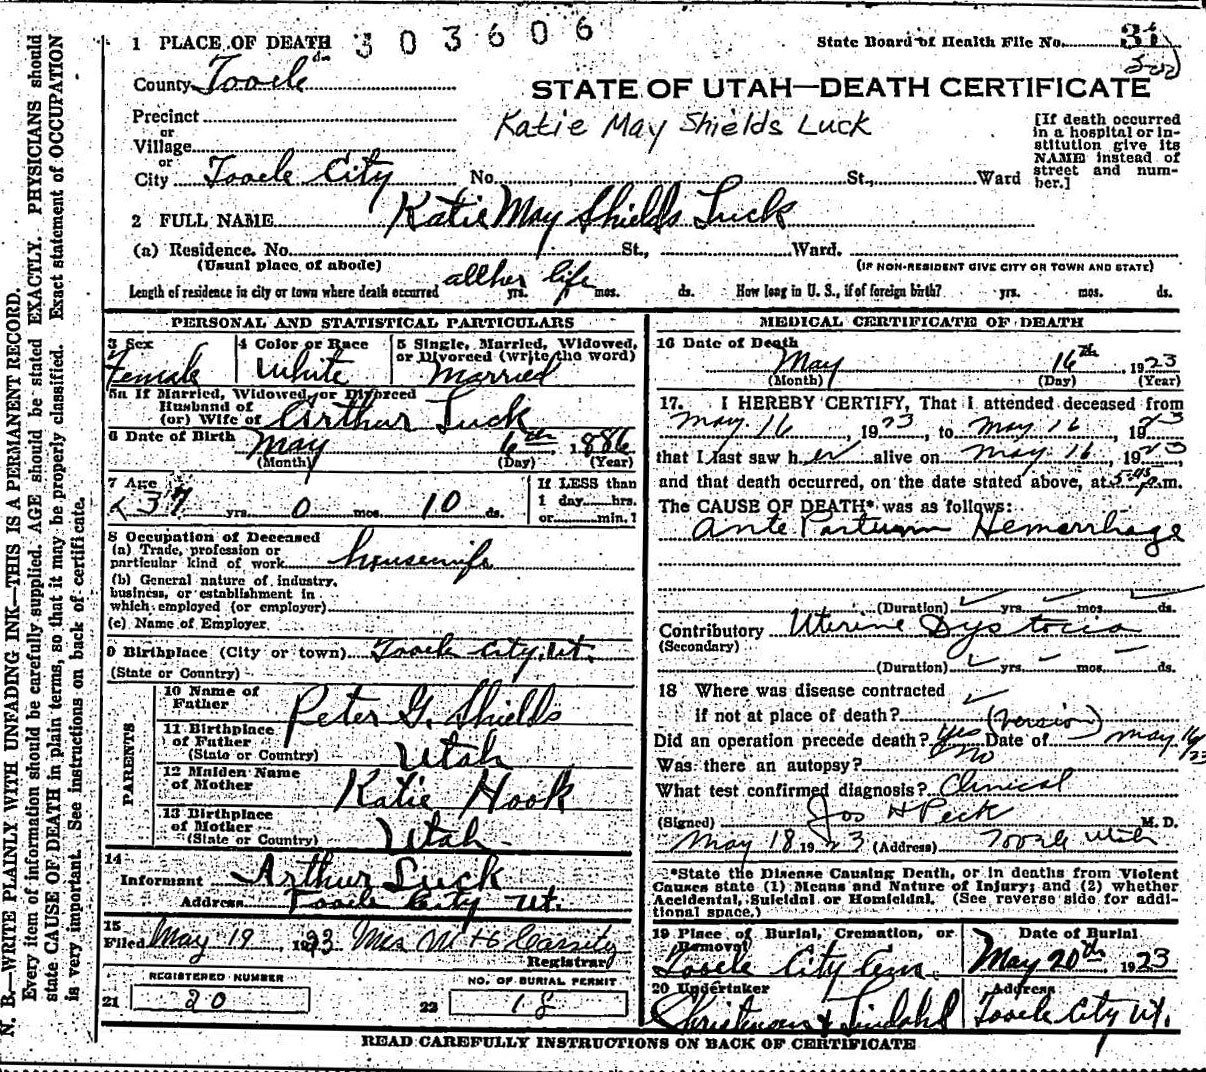 1 PLACE OF DEATH 303606
State Board of Health File No. 34
County Tooele
STATE OF UTAH—DEATH CERTIFICATE
Precinct
or
Village
or
City Tooele City No. St., Ward
Katie May Shields Luck
[If death occurred
in a hospital or in-
stitution give its
NAME instead of
street and num-
ber.]
2 FULL NAME Katie May Shields Luck
(a) Residence. No. St., Ward.
(Usual place of abode) (IF NON-RESIDENT GIVE CITY OR TOWN AND STATE)
Length of residence in city or town where death occurred all her life yrs. mos. ds. How long in U. S., if of foreign birth? yrs. mos. ds.
PERSONAL AND STATISTICAL PARTICULARS
3 Sex
Female
4 Color or Race
White
5 Single, Married, Widowed,
or Divorced (write the word)
Married
5a If Married, Widowed, or Divorced
Husband of
(or) Wife of Arthur Luck
6 Date of Birth May 6th, 1886
(Month) (Day) (Year)
7 Age
37 yrs. 0 mos. 10 ds.
If LESS than
1 day hrs.
or min.?
8 Occupation of Deceased
(a) Trade, profession or
particular kind of work housewife
(b) General nature of industry,
business, or establishment in
which employed (or employer)
(c) Name of Employer
9 Birthplace (City or town) Tooele City, Ut.
(State or Country)
PARENTS
10 Name of
Father Peter G. Shields
11 Birthplace
of Father
(State or Country) Utah
12 Maiden Name
of Mother Katie Hook
13 Birthplace
of Mother
(State or Country) Utah
14
Informant Arthur Luck
Address Tooele City Ut.
15
Filed May 19, 1923 Mrs
Registrar
REGISTERED NUMBER
21 20
NO. OF BURIAL PERMIT
22 18
MEDICAL CERTIFICATE OF DEATH
16 Date of Death
May 16th, 1923
(Month) (Day) (Year)
17. I HEREBY CERTIFY, That I attended deceased from
May 16, 1923, to May 16, 1923
that I last saw her alive on May 16, 1923,
and that death occurred, on the date stated above, at 5-45 p.m.
The CAUSE OF DEATH* was as follows:
Ante Partum Hemorrhage
(Duration) yrs. mos. ds.
Contributory Uterine Dystocia
(Secondary)
(Duration) yrs. mos. ds.
18 Where was disease contracted
if not at place of death?
(version)
Did an operation precede death? Yes Date of May 16/23
Was there an autopsy? no
What test confirmed diagnosis? Clinical
(Signed) Jos H Peck M. D.
May 18 1923 (Address) Tooele Utah
*State the Disease Causing Death, or in deaths from Violent
Causes state (1) Means and Nature of Injury; and (2) whether
Accidental, Suicidal or Homicidal. (See reverse side for addi-
tional space.)
19 Place of Burial, Cremation, or
Removal
Tooele City Cem.
Date of Burial
May 20th, 1923
20 Undertaker
Lindahl
Address
Tooele City Ut.
READ CAREFULLY INSTRUCTIONS ON BACK OF CERTIFICATE
N. B.—WRITE PLAINLY WITH UNFADING INK—THIS IS A PERMANENT RECORD.
Every item of information should be carefully supplied. AGE should be stated EXACTLY. PHYSICIANS should
state CAUSE OF DEATH in plain terms, so that it may be properly classified. Exact statement of OCCUPATION
is very important. See instructions on back of certificate.